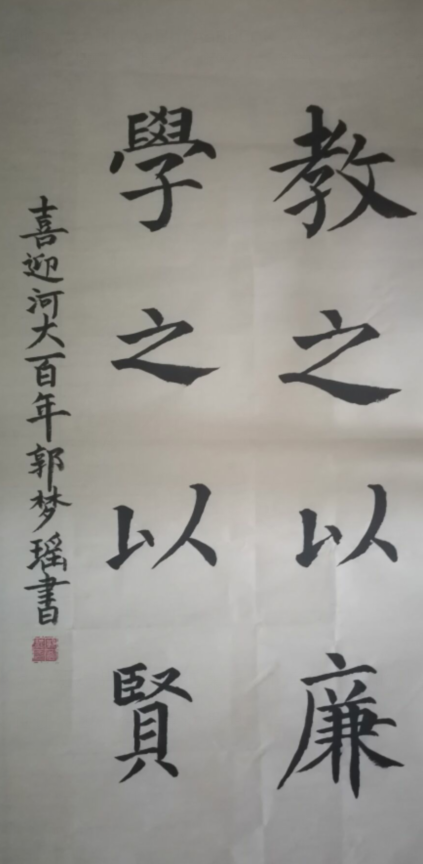 教之以廉
學之以賢
喜迎河大百年郭梦瑶書